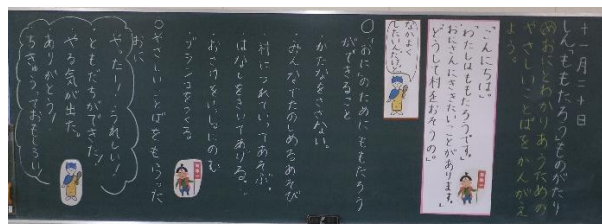 十一月二十日
しん、ももたろうものがたり
めおにとわかりあうための
やさしいことばをかんがえ
よう。
「こんにちは。」
「わたしはももたろうです。」
「おにさんにききたいことがあります。」
「どうして村をおそうの。」
なかよく
したいんだけど
○おにのためにももたろう
ができること
・かたなをささない。
・みんなでたのしめるあそび
・村につれていってあそぶ。
・はなしをきいてあげる。
・おさけをいっしょにのむ
・ダンゴをつくる
○やさしいことばをもらった
おに
・やったー!うれしい!
・ともだちができた!
・やる気が出た。
・ありがとう!
・ちきゅうっておもしろい